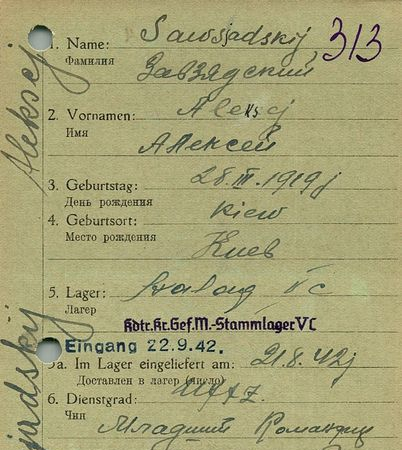 1. Name: Sawsjadskij, 313
Фамилия Завзядский
2. Vornamen: Aleksej
Имя Алексей
3. Geburtstag: 28.III.1919j
День рождения
4. Geburtsort: Kiew
Место рождения Киев
5. Lager: Stalag Vc
Лагер
Kdtr.Kr.Gef.M.-Stammlager VC
Eingang 22.9.42.
5a. Im Lager eingeliefert am: 21.8.42j
Доставлен в лагер (число)
6. Dienstgrad:
Чин Младший Командир
Aleksej
jadskij